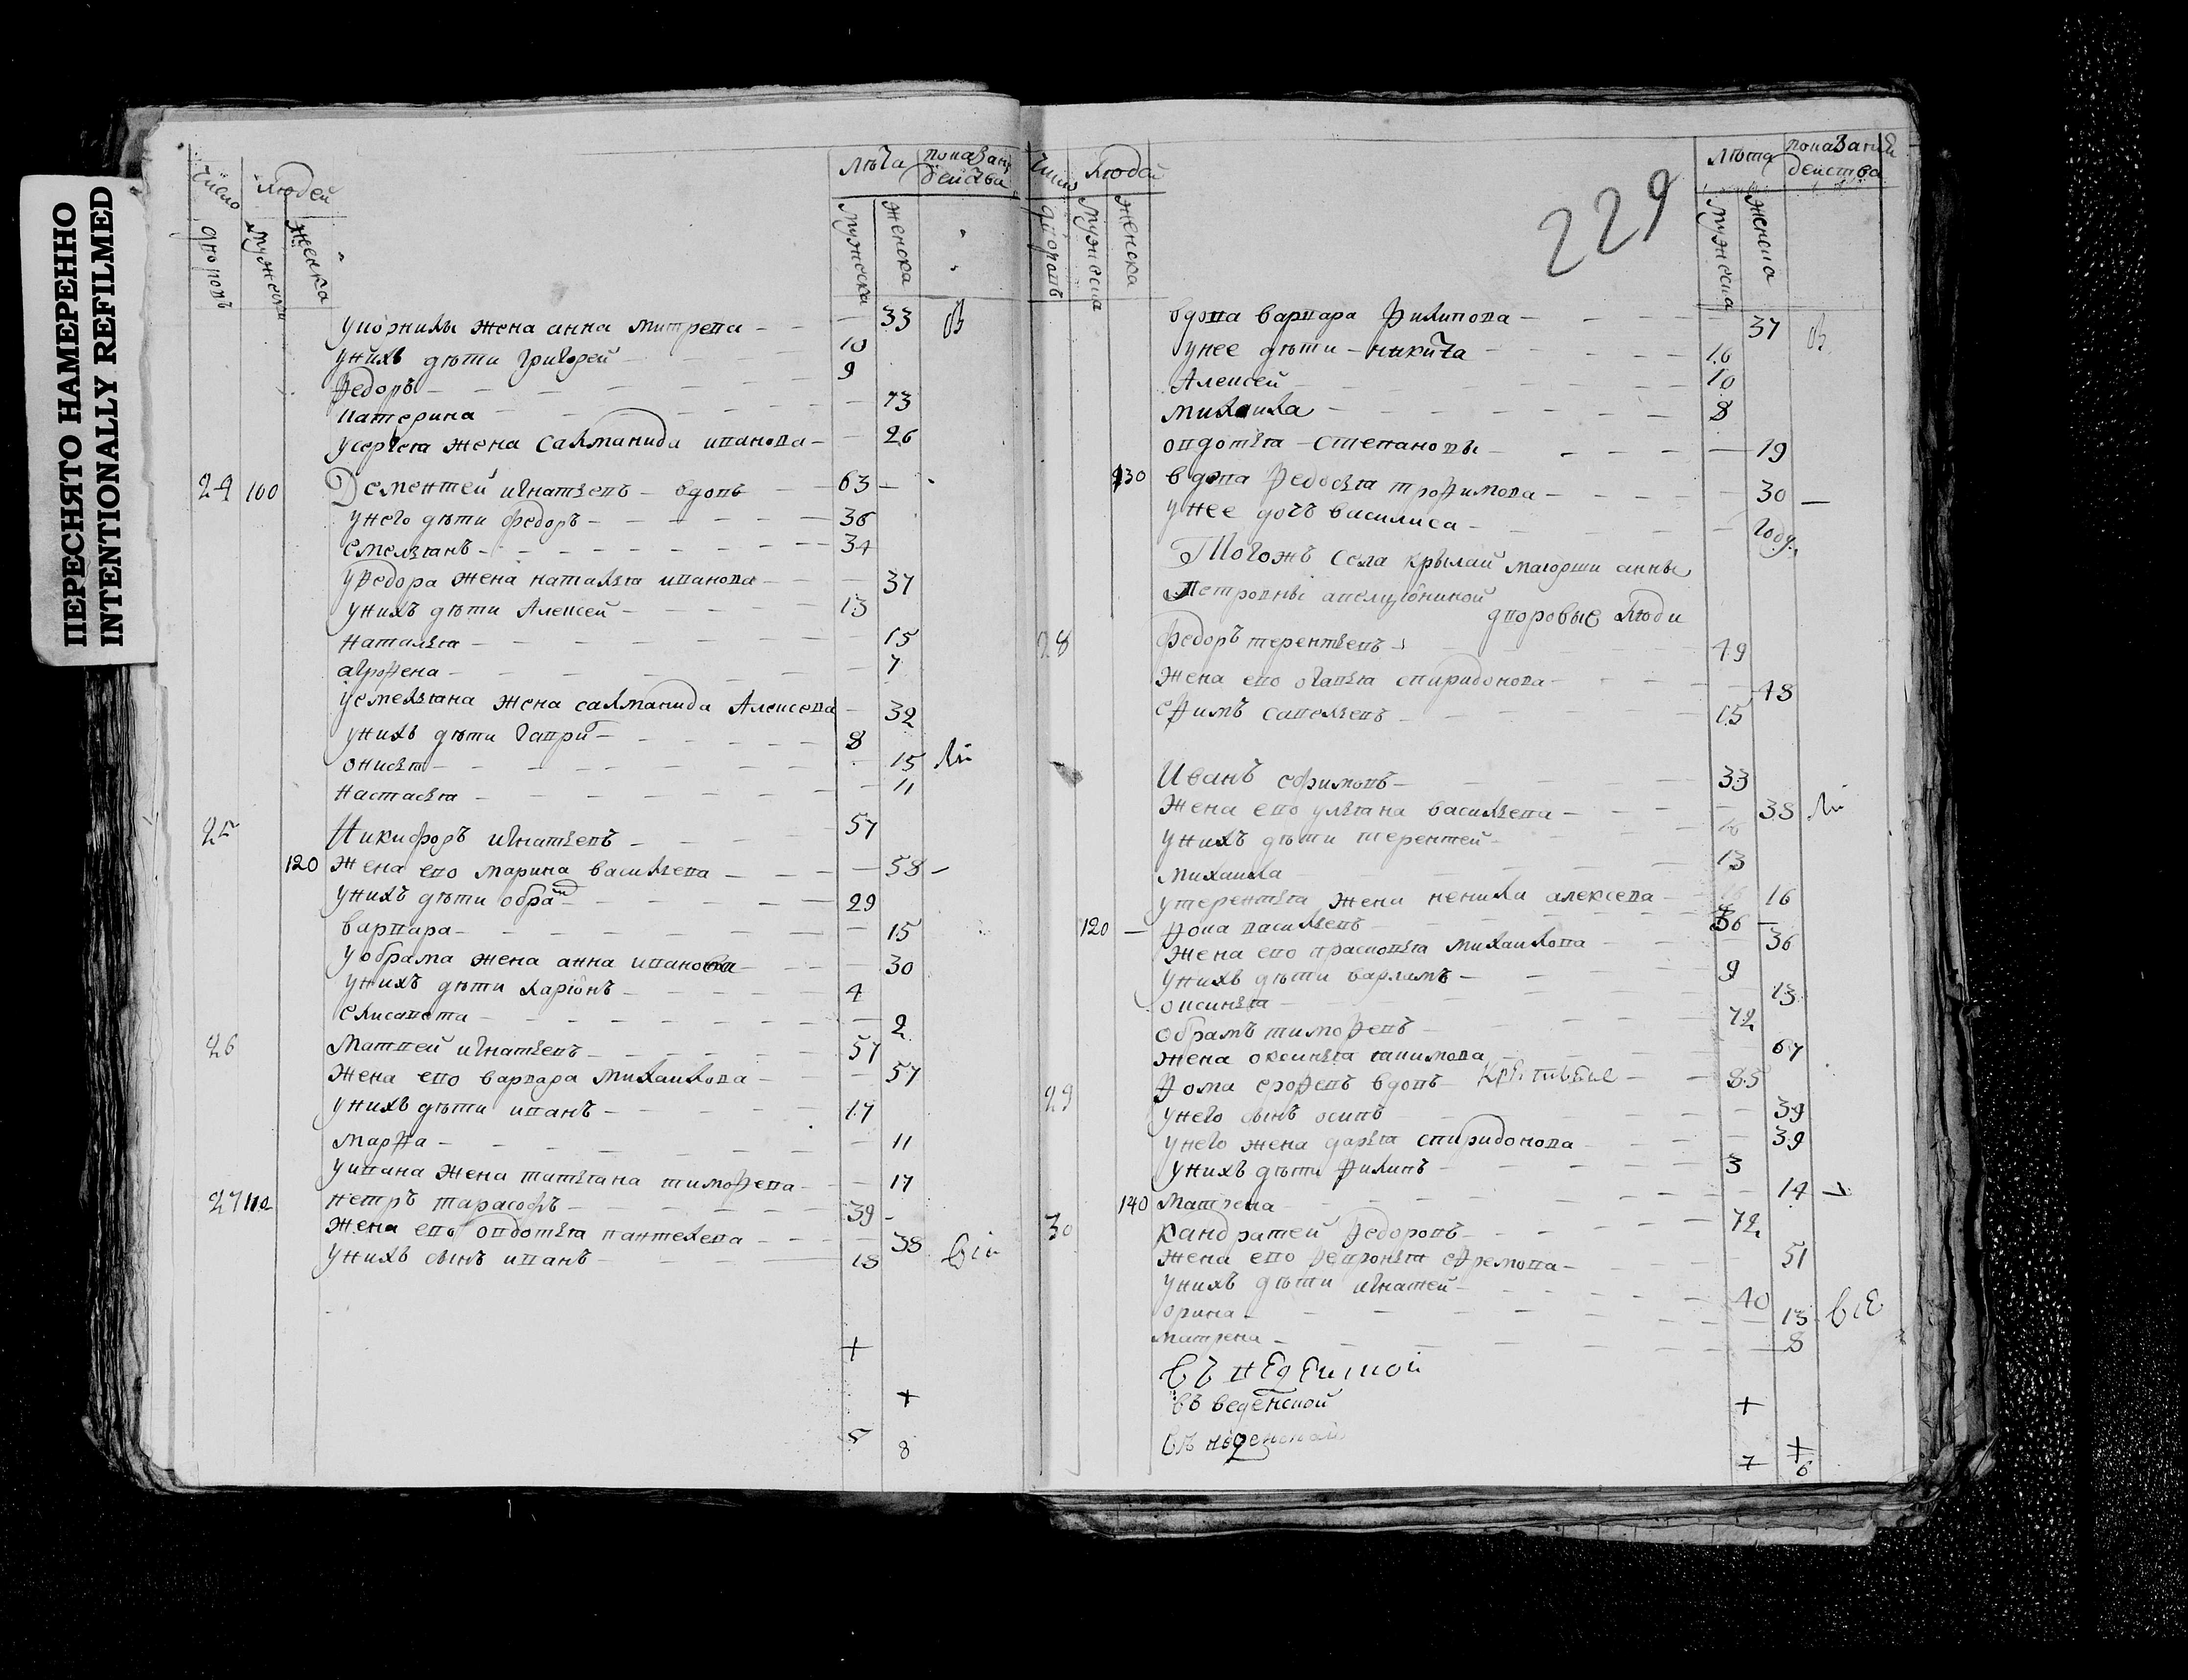 ПЕРЕСНЯТО НАМЕРЕННО
INTENTIONALLY REFILMED
число людей лѣта показани действа
дворовъ мужеска женска мужеска женска
жена анна митрева 33
унихъ дѣти григорей 10
федоръ 9
катерина 13
жена салманида иванова 26
24 100 Дементей игнатьевъ вдовъ 63
унего дѣти федоръ 36
емельянъ 34
уфедора жена наталья иванова 37
унихъ дѣти Алексей 13
наталья 15
агрофена 7
уемельяна жена салманида Алексева 32
унихъ дѣти гаври 8
онисья 15
настасья 11
25 Никифоръ игнатьевъ 57
120 жена ево марина васильева 58
унихъ дѣти обрам 29
варвара 15
уобрама жена анна иванова 30
унихъ дѣти ларіонъ 4
елисавета 2
26 матвей игнатьевъ 57
жена ево варвара михаилова 57
унихъ дѣти иванъ 17
марфа 11
уивана жена татьяна тимофева 17
27 петръ тарасовъ 39
жена ево овдотья пантелева 38
унихъ сынъ иванъ 18
+
+
5 8
229
число людей лѣта показаний действа
дворовъ мужеска женска мужеска женска
вдова варвара филипова 37
унее дѣти никита 16
Алексей 10
михаила 8
овдотья степановы 19
130 вдова федосья трофимова 30
унее дочъ василиса году
Тогожъ села крылай маіорши анны
Петровны
дворовые люди
28 федоръ терентьевъ 49
жена ево огапья спиридонова 48
ефимъ савельевъ 15
Иванъ ефимовъ 33
жена ево ульяна васильева 38
унихъ дѣти терентей
михаила 13
утерентья жена алексева 16
120 фома васильевъ 36
жена ево прасковья михаилова 36
унихъ дѣти варламъ 9
оксинья 13
обрамъ тимофевъ 72
жена оксинья 67
29 фома ерофевъ вдовъ 85
унего сынъ осипъ 39
унего жена дарья спиридонова 39
унихъ дѣти филипъ 3
140 матрена 14
30 кандратей федоровъ 72
жена ево февронья ефремова 51
унихъ дѣти игнатей 40
орина 13
матрена 8
въ веденской
+
+
7 6